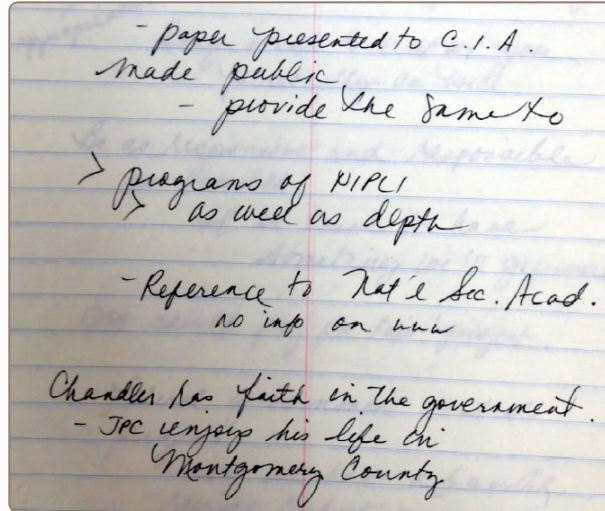 - paper presented to C.I.A.
made public
- provide the same to
> programs of NIPLI
> as well as depth
- Reference to Nat'l Sec. Acad.
no info on www
Chandler has faith in the government.
- JPC enjoys his life in
Montgomery County